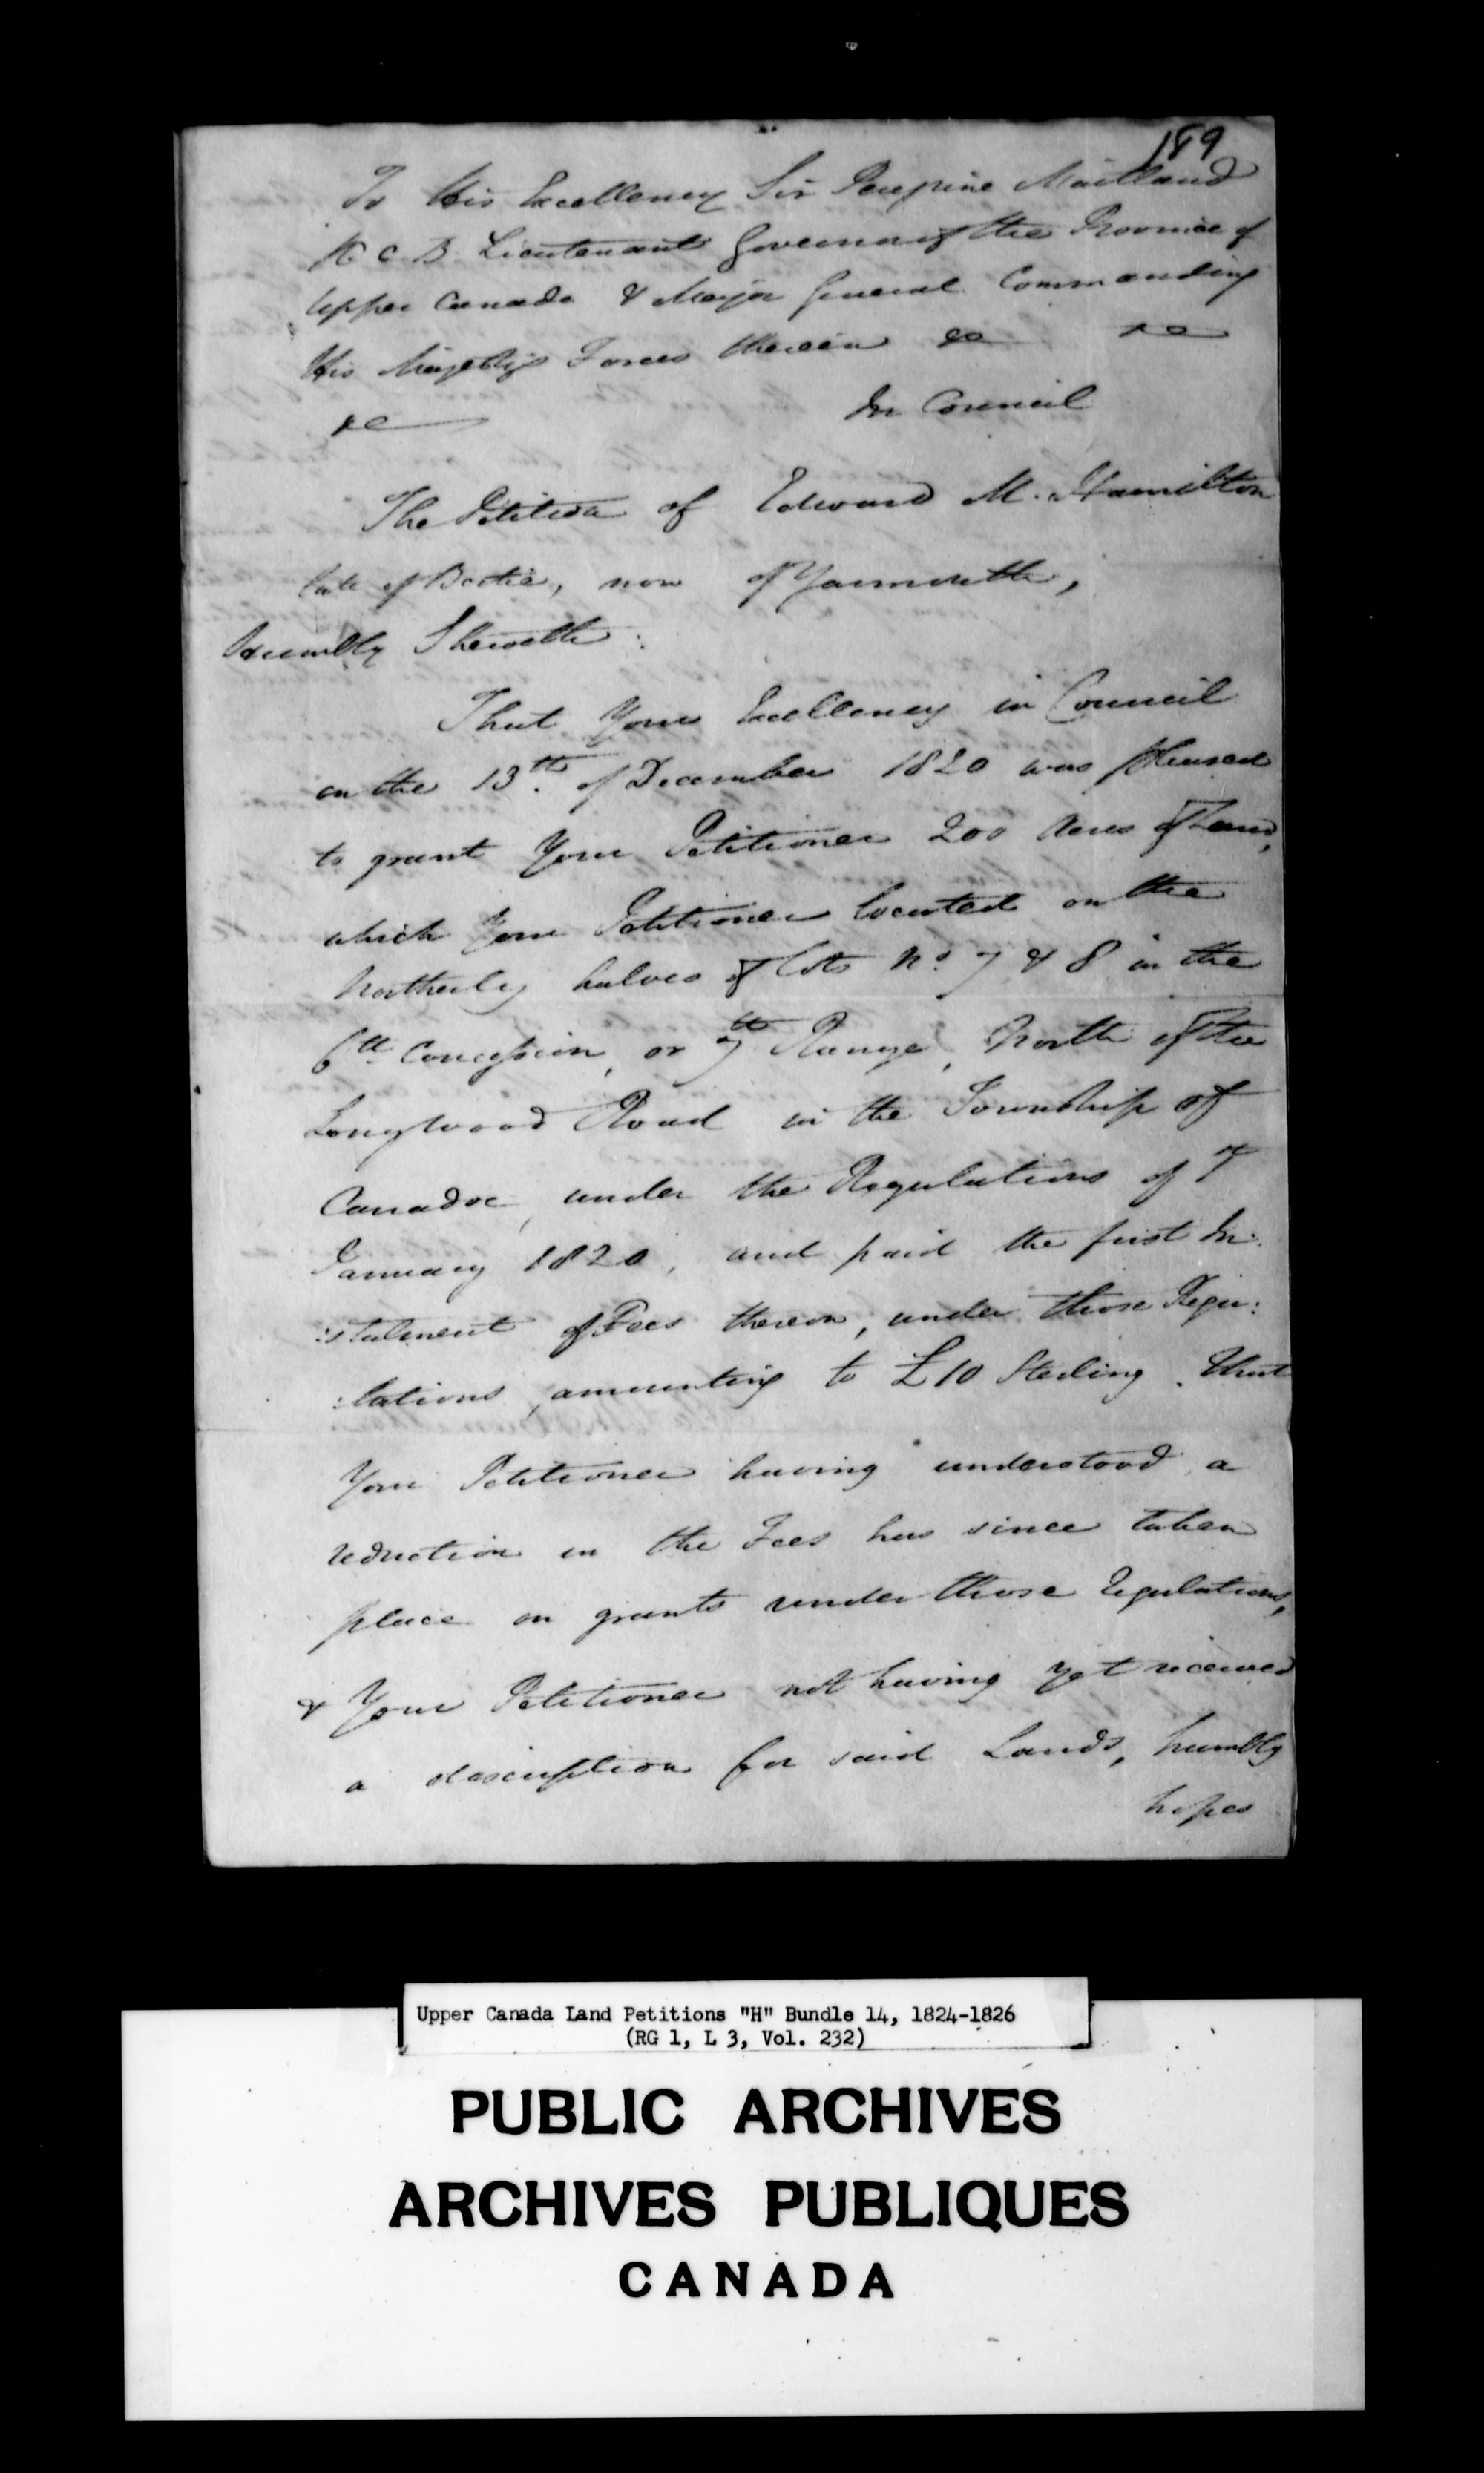 189
To His Excellency Sir Peregrine Maitland
K C B Lieutenant Governor of the Province of
Upper Canada & Major General Commanding
His Majesty's Forces therein &c &c
&c In Council
The Petition of Edward M. Hamilton
late of Bertie, now of Yarmouth,
humbly Sheweth:
That Your Excellency in Council
on the 13th. of December 1820 was pleased
to grant Your Petitioner 200 Acres of Land,
which Your Petitioner located on the
Northerly halves of lots No. 7 & 8 in the
6th Concession, or 7th Range, North of the
Longwood Road in the Township of
Caradoc, under the Regulations of
January 1820, and paid the first In:
:stalment of Fees thereon, under those Regu:
:lations, amounting to £10 Sterling. that
Your Petitioner having understood a
reduction in the Fees has since taken
place on grants under those regulations,
& Your Petitioner not having yet received
a description for said Lands, humbly
hopes
Upper Canada Land Petitions "H" Bundle 14, 1824-1826
(RG 1, L 3, Vol. 232)
PUBLIC ARCHIVES
ARCHIVES PUBLIQUES
CANADA